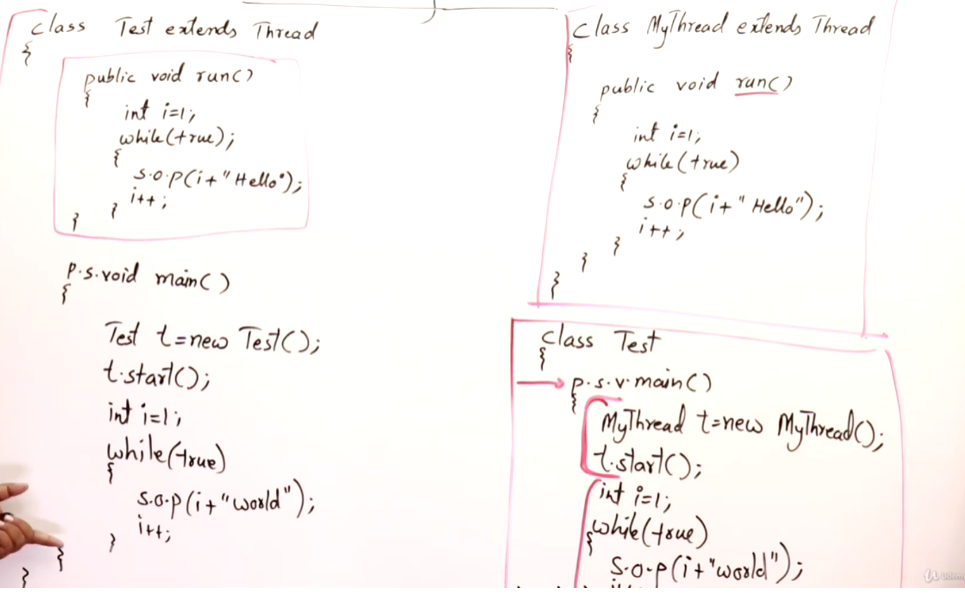 class Test extends Thread
{
public void run()
{
int i=1;
while(true);
{
s.o.p(i+"Hello");
i++;
}
}
p.s.void main()
{
Test t=new Test();
t.start();
int i=1;
while(true)
{
s.o.p(i+"world");
i++;
}
}
}
class MyThread extends Thread
{
public void run()
{
int i=1;
while(true)
{
s.o.p(i+"Hello");
i++;
}
}
}
class Test
{
p.s.v.main()
{
MyThread t=new MyThread();
t.start();
int i=1;
while(true)
{
s.o.p(i+"world");